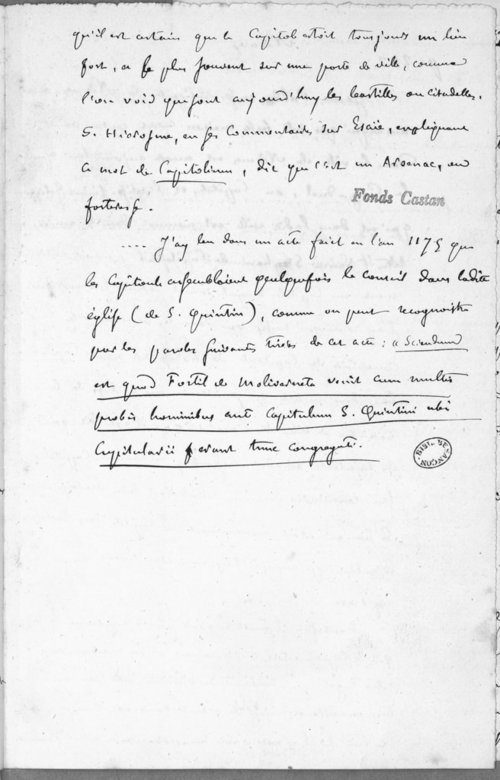 qu'il est certain que le Capitol estoit tousjours un lieu
fort, et le plus souvent sur une porte de ville, comme
l'on void que sont aujourd'huy les bastilles ou citadelles.
S. Hierosme, en ses Commentaires sur Esaïe, expliquant
ce mot de Capitolium, dit que c'est un Arsenac, ou
forteresse.
Fonds Castan
.... J'ay leu dans un acte faict en l'an 1175 que
les Capitouls assembloient quelquefois le conseil dans ladite
église (de S. Quintin), comme on peut recognoistre
par les paroles suivantes tirées de cet acte : « Sciendum
est quod Fortil de Molivarneto venit cum multis
probis hominibus ante Capitulum S. Quintini ubi
Capitularii erant tunc congregati.
BIBL. BESANCON